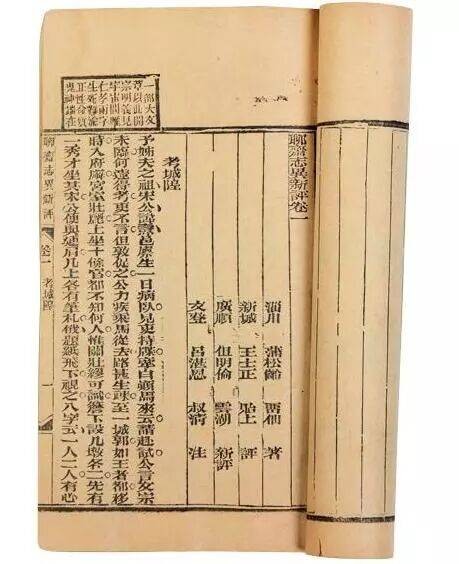 聊齋志異新評卷一
淄川 蒲松齡 留仙 著
新城 王士正 貽上 評
廣順 但明倫 雲湖 新評
文登 呂湛恩 叔清 注
考城隍
一部大文
章以此開
宗明義見
宇宙間惟
仁孝兩字
生死難渝
正性命質
鬼神端在
予姊夫之祖宋公諱燾邑廩生一日病臥見吏持牒牽白顛馬來云請赴試公言文宗
未臨何遽得考吏不言但敦促之公力疾乘馬從去路甚生疎至一城郭如王者都移
時入府廨宮室壯麗上坐十餘官都不知何人惟關壯繆可識簷下設几墩各二先有
一秀才坐其末公便與連肩几上各有筆札俄題紙飛下視之八字云一人二人有心
聊齋志異新評 卷一 考城隍 一